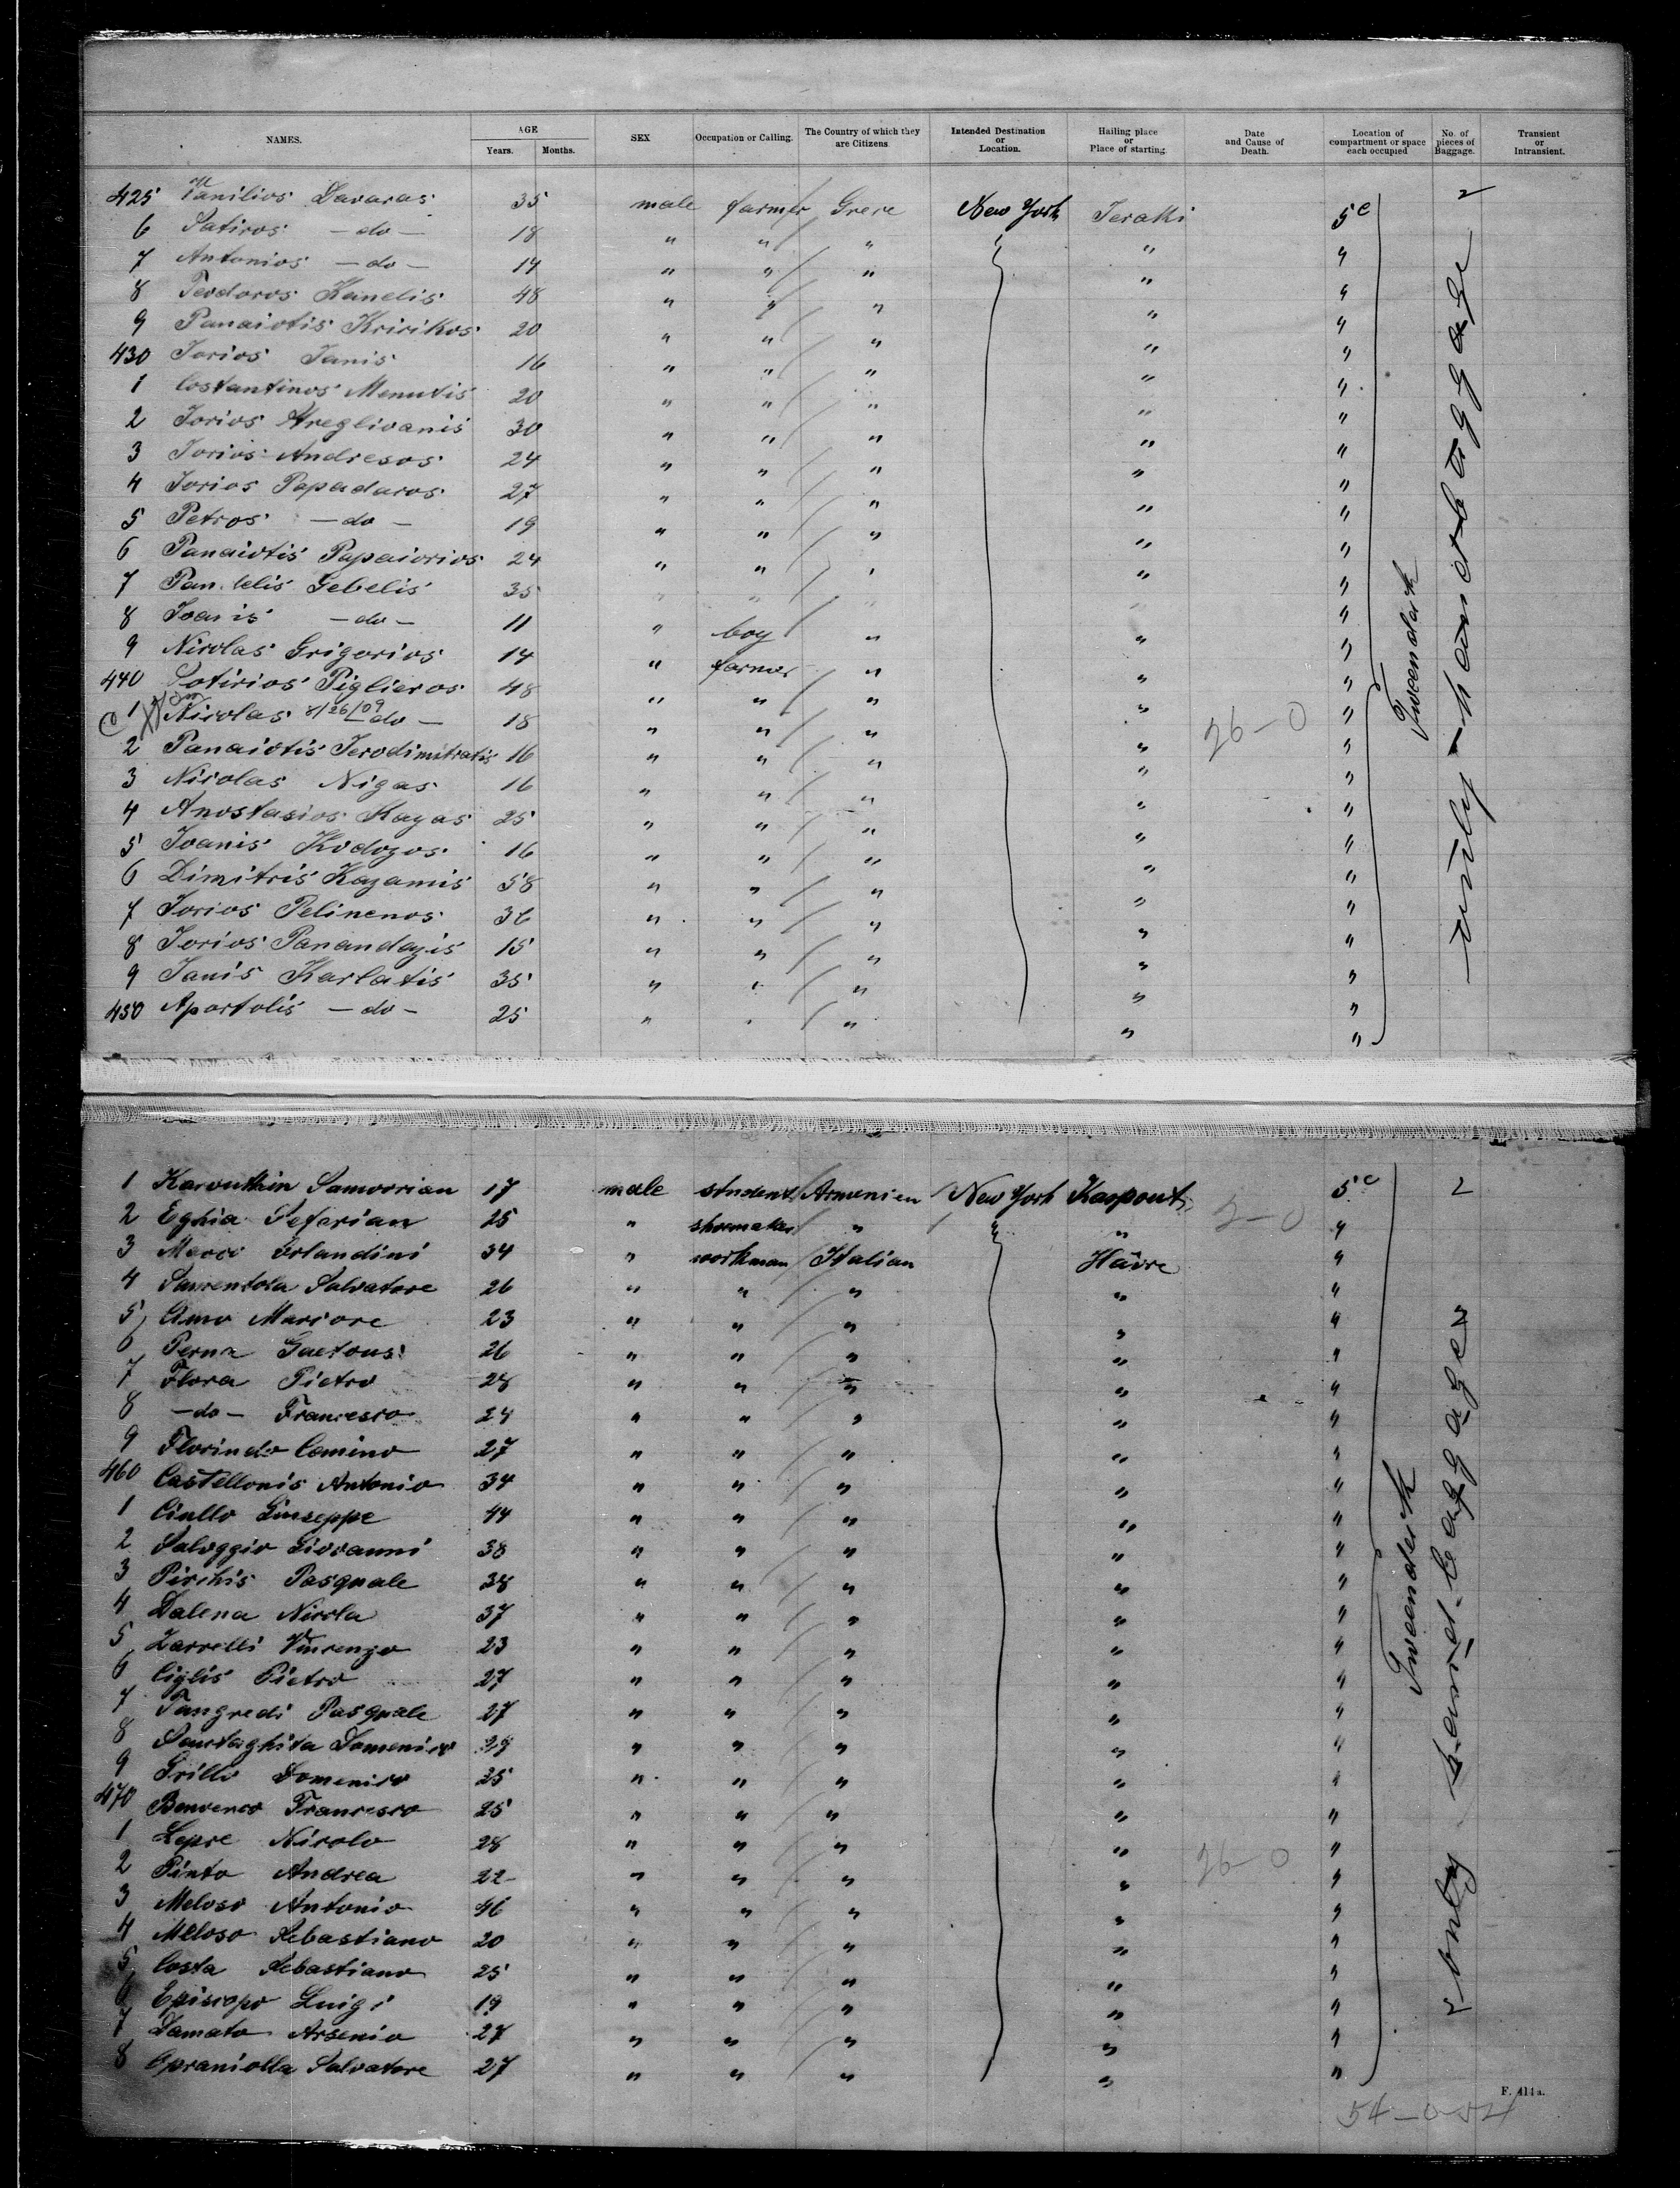 NAMES. AGE Years. Months. SEX Occupation or Calling. The Country of which they are Citizens Intended Destination or Location. Hailing place or Place of starting. Date and Cause of Death. Location of compartment or space each occupied No. of pieces of Baggage. Transient or Intransient.
425 Davaras 35 male farmer Grece New York Ieraki 5c 2
6 Satiros - do - 18 " " " " "
7 Antonios - do - 14 " " " " "
8 Teodoros Kanelis 48 " " " " "
9 Panaiotis Kririkos 20 " " " " "
430 Iorios Ianis 16 " " " " "
1 Costantinos Menutis 20 " " " " "
2 Iorios Areglivanis 30 " " " " "
3 Iorios Andresos 24 " " " " "
4 Iorios Papadaros 27 " " " " "
5 Petros - do - 19 " " " " "
6 Panaiotis Papaiorios 24 " " " " "
7 Gebelis 35 " " " " "
8 Ioanis - do - 11 " boy " " "
9 Nicolas Grigorios 14 " farmer " " "
440 Sotirios Piglieros 48 " " " " "
1 Nicolas 8/26/09 - do - 18 " " " " 26-0 "
2 Panaiotis Ierodimitratis 16 " " " " "
3 Nicolas Nigas 16 " " " " "
4 Anostasios Kagas 25 " " " " "
5 Ioanis Kodozos 16 " " " " "
6 Dimitris Kazamis 58 " " " " "
7 Iorios Pelinenos 36 " " " " "
8 Iorios Panandazis 15 " " " " "
9 Ianis Karlatis 35 " " " " "
450 Apostolis - do - 25 " " " " "
Tweendeck
only hand baggage
1 Samoorian 17 male student Armenien New York Karpout 5c 2
2 Eghia Seferian 25 " shoemaker " " "
3 Marco Orlandini 34 " workman Italian Hâvre "
4 Salvatore 26 " " " " "
5 Amo Mariore 23 " " " " "
6 Perna Gaetous 26 " " " " "
7 Flora Pietro 28 " " " " "
8 - do - Francesco 24 " " " " "
9 Florindo Comino 27 " " " " "
460 Castellonis Antonio 34 " " " " "
1 Ciullo Giuseppe 44 " " " " "
2 Saloggio Giovanni 38 " " " " "
3 Pirchis Pasquale 38 " " " " "
4 Dalena Nicola 37 " " " " "
5 Zarrelli Vincenzo 23 " " " " "
6 Ciglis Pietro 27 " " " " "
7 Tangredi Pasquale 27 " " " " "
8 Santaghita Domenico 29 " " " " "
9 Grillo Domenico 25 " " " " "
470 Francesco 25 " " " " "
1 Lepre Nicolo 28 " " " " "
2 Pinto Andrea 22 " " " " 26-0 "
3 Meloso Antonio 46 " " " " "
4 Meloso Sebastiano 20 " " " " "
5 Costa Sebastiano 25 " " " " "
6 Episcopo Luigi 19 " " " " "
7 Damato Arsenio 27 " " " " "
8 Salvatore 27 " " " " "
Tweendeck
only hand-baggage
F. 414a.
54-0-54